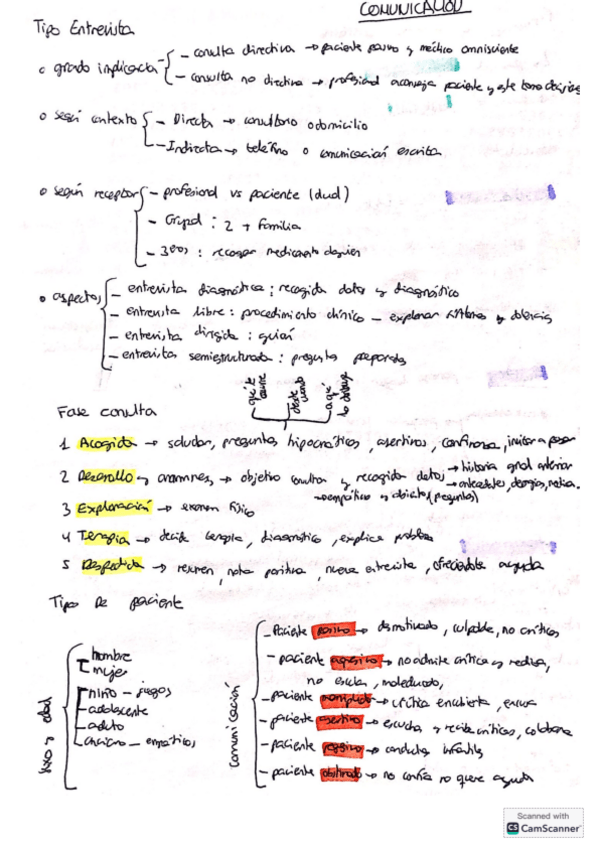 COMUNICACIÓN
Tipo Entrevista
o grado implicación - consulta directiva → paciente pasivo y médico omnisciente
- consulta no directiva → profesional aconseja paciente y este toma decisiones
o según contexto - Directa → consultorio o domicilio
- Indirecta → teléfono o comunicación escrita
o según receptor - profesional vs paciente (dual)
- Grupal : 2 + familia
- 3eros : recoger medicamento
o aspectos - entrevista diagnóstica : recogida datos y diagnóstico
- entrevista libre : procedimiento clínico - explorar síntomas y dolencias
- entrevista dirigida : guión
- entrevista semiestructurada : preguntas preparadas
qué le ocurre
desde cuando
a qué lo atribuye
Fase consulta
1 Acogida → saludar, preguntas, hipocráticas, asertivos, confianza, invitar a pasar
2 Desarrollo y anamnesis, → objetivo consulta y recogida datos → historia gral anterior
→ antecedentes, alergias, medica.
→ empático y abierto (preguntas)
3 Exploración → examen físico
4 Terapia → decide terapia, diagnóstico, explica problema
5 Despedida → resumen, nota positiva, nueva entrevista, ofreciendole ayuda
Tipo De paciente
sexo y edad
hombre
mujer
niño - juegos
- adolescente
- adulto
anciano - empáticos
comunicación
- Paciente pasivo → desmotivado, culpable, no críticas
- paciente agresivo → no admite críticas y realiza,
no escucha, maleducado,
- paciente manipulador → crítica encubierta,
- paciente asertivo → escucha y recibe críticas, colabora
- paciente regresivo → conductas infantiles
- paciente obstinado → no confía no quiere ayuda
Scanned with
CS CamScanner